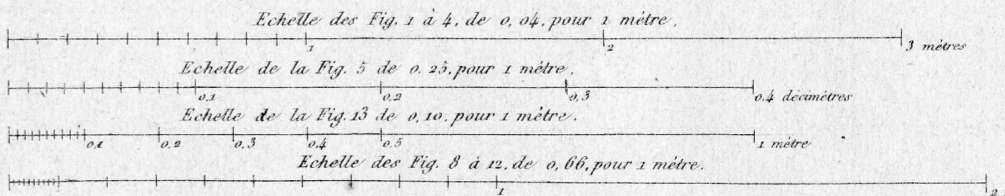 Echelle des Fig. 1 à 4, de 0, 04, pour 1 métre.
1 2 3 métres
Echelle de la Fig. 5 de 0. 25, pour 1 métre.
0,1 0,2 0,3 0.4 décimètres
Echelle de la Fig. 13 de 0, 10, pour 1 mètre.
0,1 0,2 0,3 0,4 0,5 1 mètre
Echelle des Fig. 8 à 12, de 0, 66, pour 1 mètre.
1 2